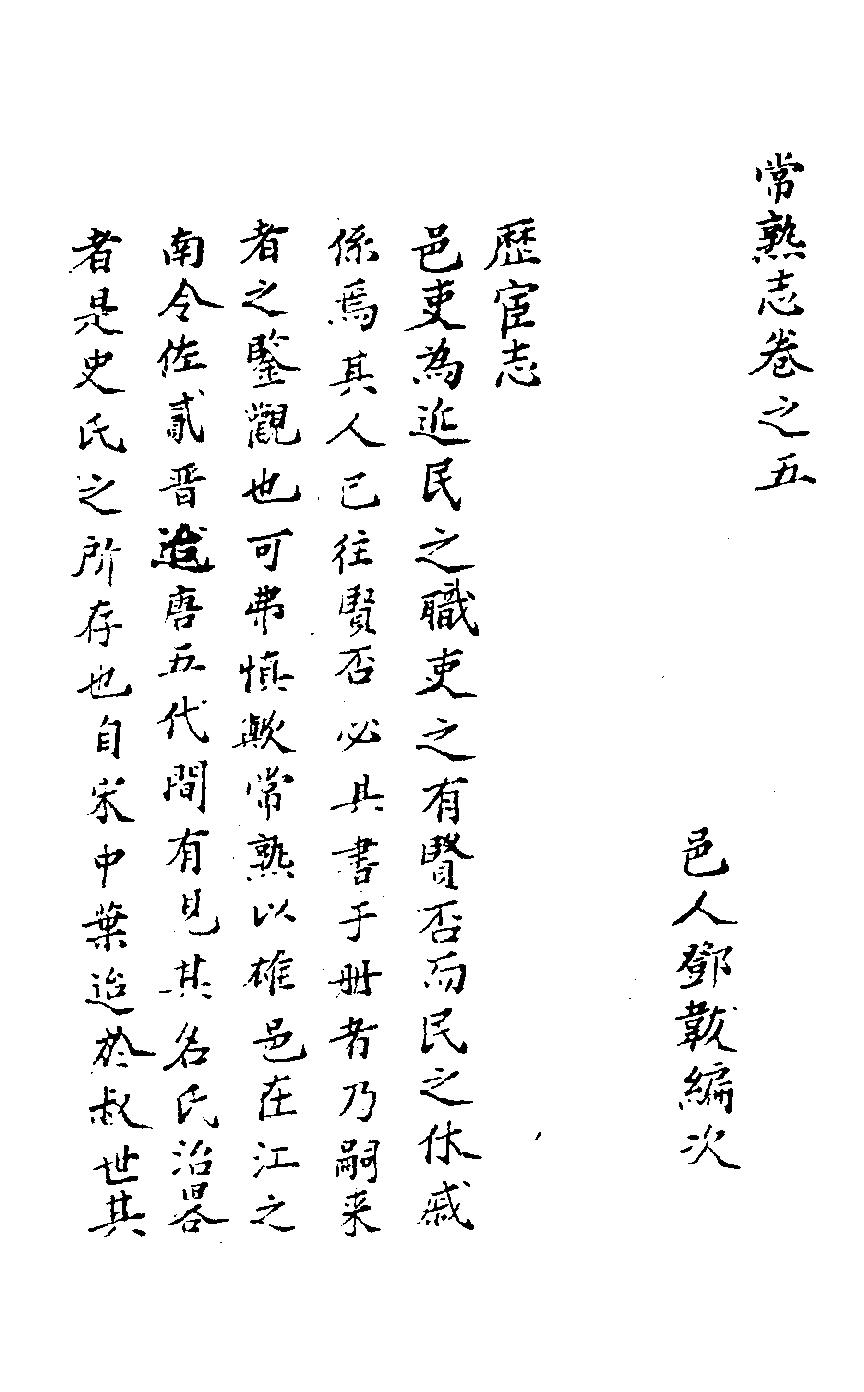 常熟志卷之五
邑人鄧韍編次
歷宦志
邑吏為近民之職吏之有賢否而民之休戚
係焉其人已往賢否必具書于冊者乃嗣来
者之鑒觀也可弗慎歟常熟以雄邑在江之
南令佐貳晋迨唐五代間有見其名氏治畧
者是史氏之所存也自宋中葉迨於叔世其